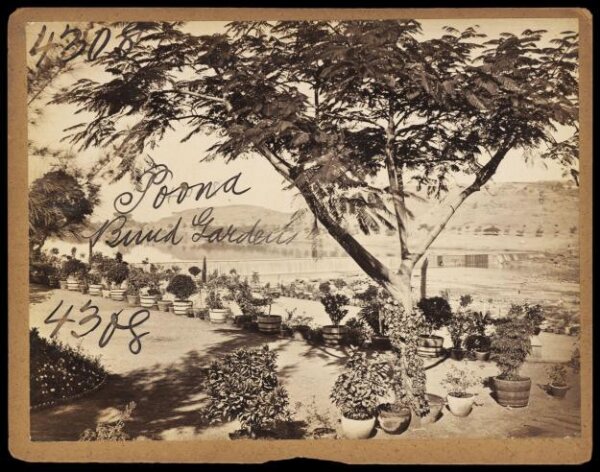 4308
Poona
Bund Gardens
4308